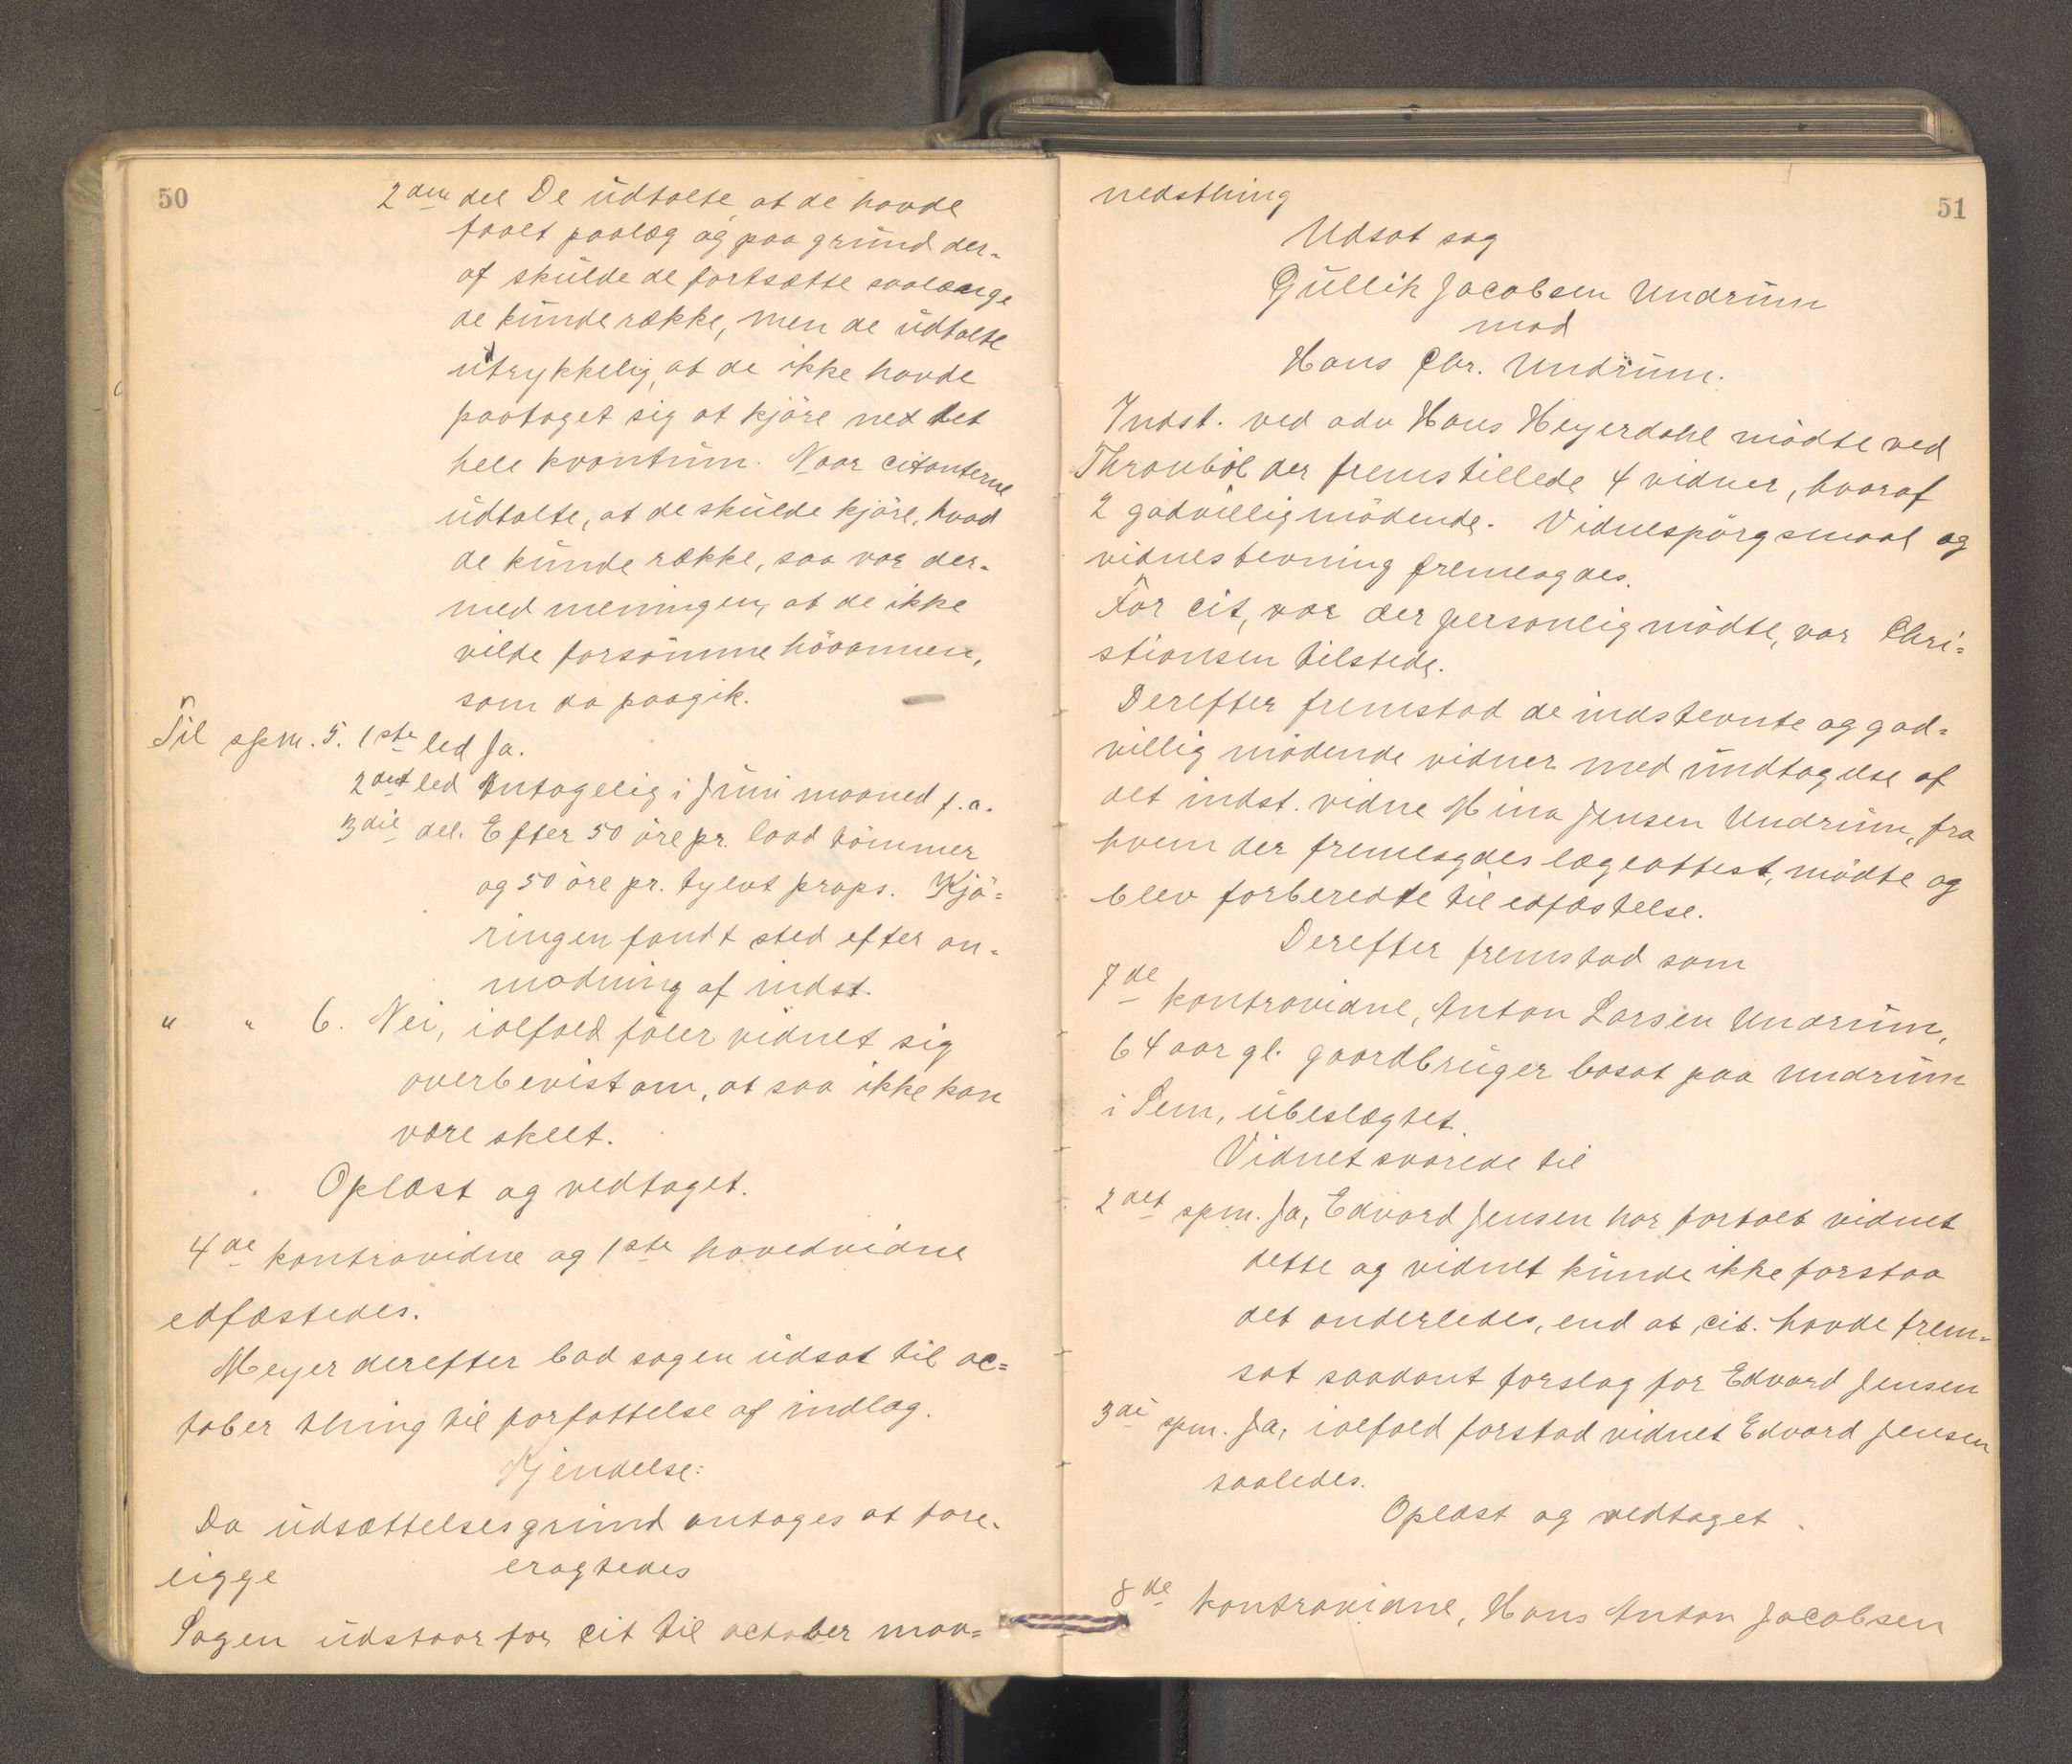 50
2den del De udtalte, at de havde
faalt paalæg og paa grund der-
af skulde de fortsætte saalænge
de kunde række, men de udtalte
utrykkelig, at de ikke havde
paataget sig at kjöre ned det
hele kvantum. Naar citanterne
udtalte, at de skulde kjöre, hvad
de kunde række, saa var der-
med meningen, at de ikke
vilde forsömme höaannen,
som da paagik.
Til spm. 5. 1ste led Ja.
2det led Antagelig i Juni maaned f.a.
3die del. Efter 50 öre pr. laad tömmer
og 50 öre pr. tylvt props. Kjö-
ringen fandt sted efter an-
modning af indst.
" " 6. Nei, ialfald föler vidnet sig
overbevist om, at saa ikke kan
være skeet.
Oplæst og vedtaget.
4de kontravidne og 1ste hovedvidne
edfæstedes.
Meyer derefter bad sagen udsat til oc-
tober thing til forfattelse af indlæg.
Kjendelse:
Da udsættelsesgrund antages at fore-
ligge eragtedes
Sagen udstaar for cit til october maa-
51
nedsthing
Udsat sag
Gullik Jacobsen Undrum
mod
Hans Chr. Undrum.
Indst. ved adv Hans Heyerdahl mödte ved
Thronböl der fremstillede 4 vidner, hvoraf
2 godvillig mödende. Vidnespörgsmaal og
vidnestevning fremlagdes.
For cit, var der personlig mödte, var Chri-
stiansen tilstede.
Derefter fremstod de indstevnte og god-
villig mödende vidner med undtagelse af
det indst. vidne Mina Jensen Undrum, fra
hvem der fremlagdes lægeattest, mödte og
blev forberedte til edfæstelse.
Derefter fremstod som
7de kontravidne, Anton Larsen Undrum,
64 aar gl. gaardbruger bosat paa Undrum
i Sem, ubeslægtet.
Vidnet svarede til
2det spm. Ja, Edvard Jensen har fortalt vidnet
dette og vidnet kunde ikke forstaa
det anderledes, end at cit. havde frem-
sat saadant forslag for Edvard Jensen
3die spm. Ja, ialfald forstod vidnet Edvard Jensen
saaledes.
Oplæst og vedtaget
8de kontravidne, Hans Anton Jacobsen